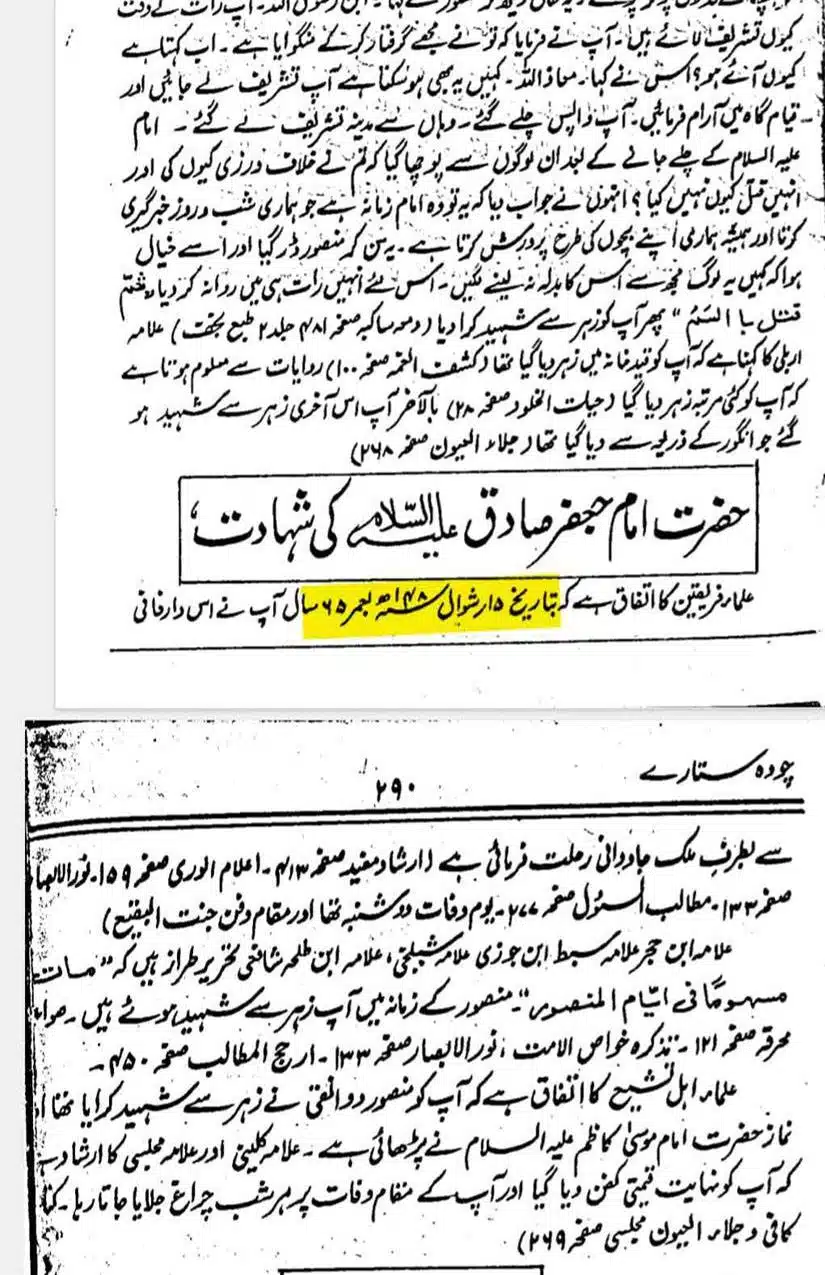 کیوں تشریف لائے ہیں۔ آپ نے فرمایا کہ تو نے مجھے گرفتار کرکے منگوایا ہے۔ اب کہتا ہے
کیوں آئے ہو؟ اس نے کہا۔ معاذ اللہ۔ کہیں یہ بھی ہو سکتا ہے آپ تشریف لے جائیں اور
قیام گاہ میں آرام فرمائیں۔ آپ واپس چلے گئے۔ وہاں سے مدینہ تشریف لے گئے۔ امام
علیہ السلام کے چلے جانے کے بعد ان لوگوں سے پوچھا گیا کہ تم نے خلاف ورزی کیوں کی اور
انہیں قتل کیوں نہیں کیا؟ انہوں نے جواب دیا کہ یہ تو وہ امام زمانہ ہے جو ہماری شب و روز خبر گیری
کرتا اور ہمیشہ ہماری اپنے بچوں کی طرح پرورش کرتا ہے۔ یہ سن کر منصور ڈر گیا اور اسے خیال
ہوا کہ کہیں یہ لوگ مجھ سے اس کا بدلہ نہ لینے لگیں۔ اس لئے انہیں رات ہی میں روانہ کر دیا "ثم
قتل با السم" پھر آپ کو زہر سے شہید کرا دیا (دمعہ ساکبہ صفحہ ۴۸۱ جلد ۲ طبع نجف) علامہ
اربلی کا کہنا ہے کہ آپ کو قید خانہ میں زہر دیا گیا تھا (کشف الغمہ صفحہ ۱۰۰) روایات سے معلوم ہوتا ہے
کہ آپ کو کئی مرتبہ زہر دیا گیا (جنات الخلود صفحہ ۲۸) بالآخر آپ اس آخری زہر سے شہید ہو
گئے جو انگور کے ذریعہ سے دیا گیا تھا (جلاء العیون صفحہ ۲۶۸)
حضرت امام جعفر صادق علیہ السلام کی شہادت
علماء فریقین کا اتفاق ہے کہ بتاریخ ۱۵ر شوال ۱۴۸ھ بعمر ۶۵ سال آپ نے اس دار فانی
چودہ ستارے
۲۹۰
سے بطرف ملک جاودانی رحلت فرمائی ہے (ارشاد مفید صفحہ ۴۱۳۔ اعلام الوری صفحہ ۱۵۹۔ نور الابصا
صفحہ ۱۳۳۔ مطالب السئول صفحہ ۲۷۷۔ یوم وفات دوشنبہ تھا اور مقام دفن جنت البقیع)
علامہ ابن حجر علامہ سبط ابن جوزی علامہ شبلنجی، علامہ ابن طلحہ شافعی تحریر طراز ہیں کہ "مات
مسموما فی ایام المنصور"۔ منصور کے زمانہ میں آپ زہر سے شہید ہوئے ہیں۔ صواء
محرقہ صفحہ ۱۲۱۔ تذکرہ خواص الامت، نور الابصار صفحہ ۱۳۳۔ ارجح المطالب صفحہ ۴۵۰۔
علماء اہل تشیع کا اتفاق ہے کہ آپ کو منصور دوانقی نے زہر سے شہید کرایا تھا
نماز حضرت امام موسیٰ کاظم علیہ السلام نے پڑھائی ہے۔ علامہ کلینی اور علامہ مجلسی کا ارشاد ہے
کہ آپ کو نہایت قیمتی کفن دیا گیا اور آپ کے مقام وفات پر ہر شب چراغ جلایا جاتا رہا۔ کتا
کافی و جلاء العیون مجلسی صفحہ ۲۶۹)